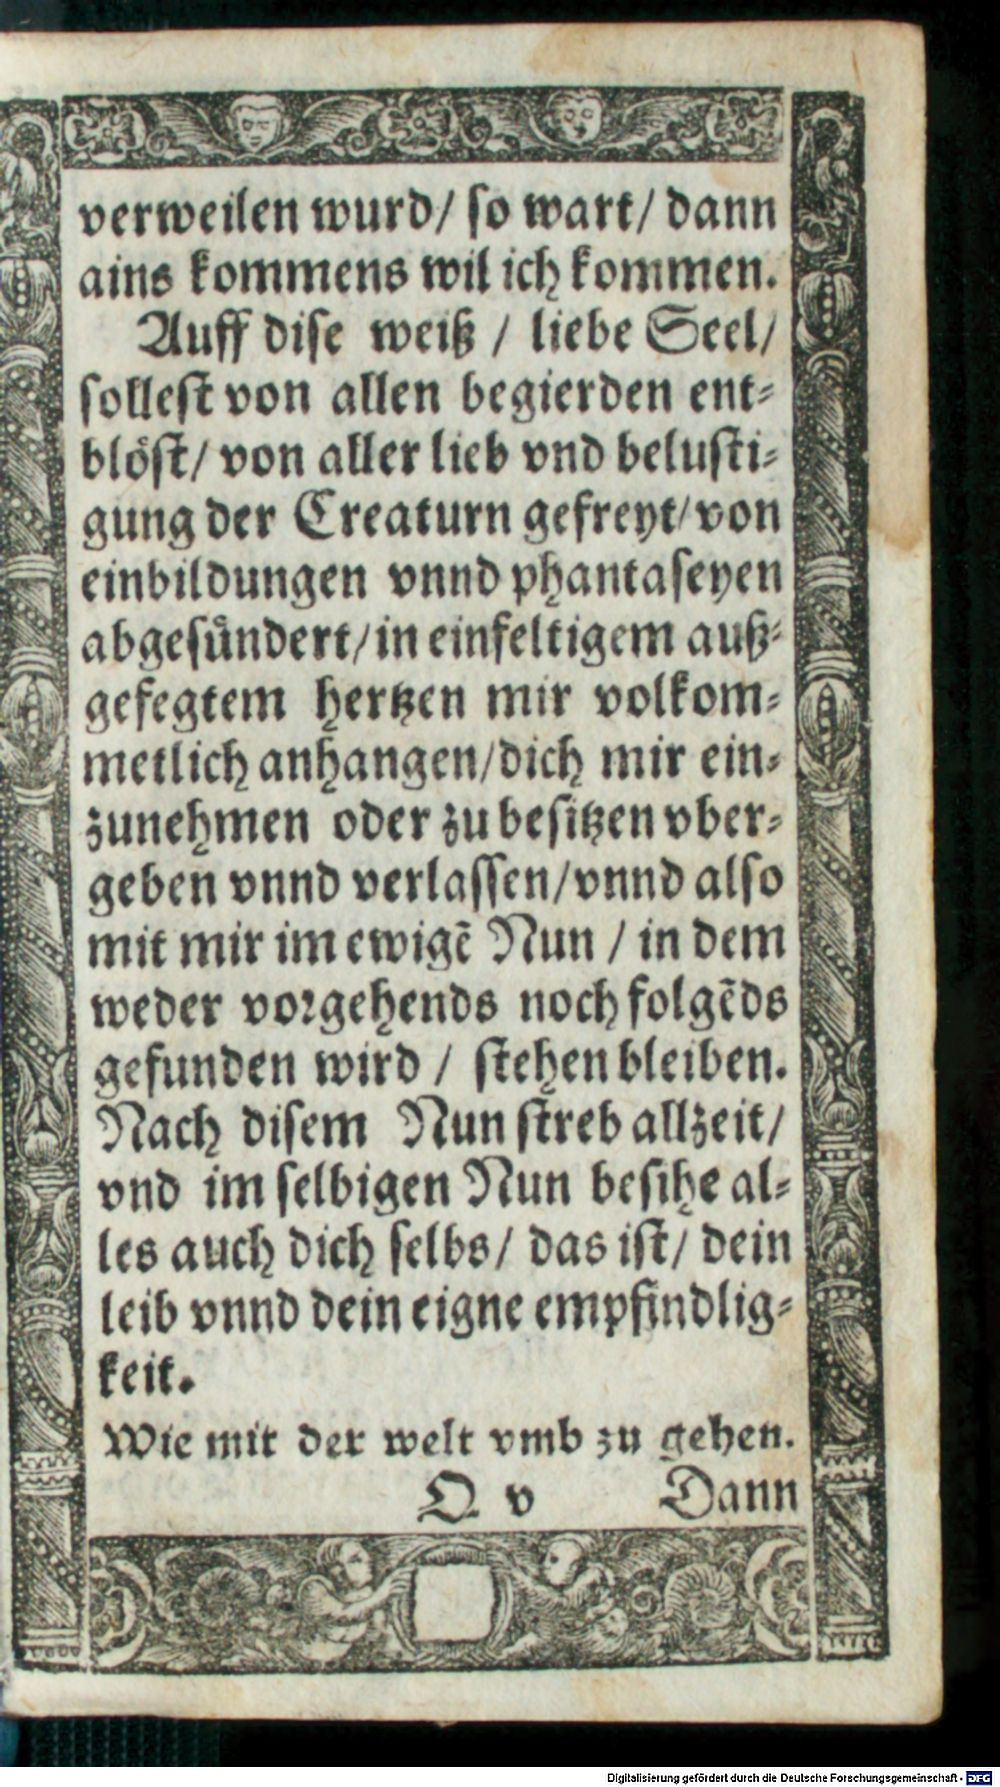 verweilen wurd/ so wart/ dann
ains kommens wil ich kommen.
Auff dise weiß / liebe Seel/
sollest von allen begierden ent⸗
blöst/ von aller lieb vnd belusti⸗
gung der Creaturn gefreyt/ von
einbildungen vnnd phantaseyen
abgesündert/ in einfeltigem auß⸗
gefegtem hertzen mir volkom⸗
metlich anhangen/ dich mir ein⸗
zunehmen oder zu besitzen vber⸗
geben vnnd verlassen/ vnnd also
mit mir im ewigẽ Nun / in dem
weder vorgehends noch folgẽds
gefunden wird / stehen bleiben.
Nach disem Nun streb allzeit/
vnd im selbigen Nun besihe al⸗
les auch dich selbs/ das ist/ dein
leib vnnd dein eigne empfindlig⸗
keit.
Wie mit der welt vmb zu gehen.
Q v Dann
Digitalisierung gefördert durch die Deutsche Forschungsgemeinschaft - DFG